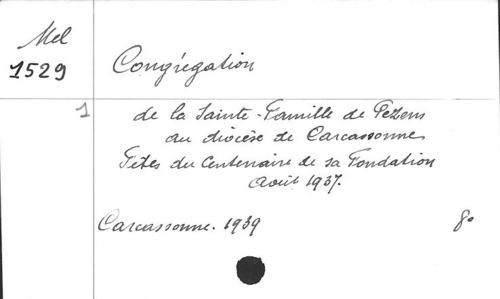 Mel
1529
Congrégation
1
de la Sainte-Famille de Pezens
au diocèse de Carcassonne
Fêtes du Centenaire de sa Fondation
Août 1937.
Carcassonne. 1939
8°